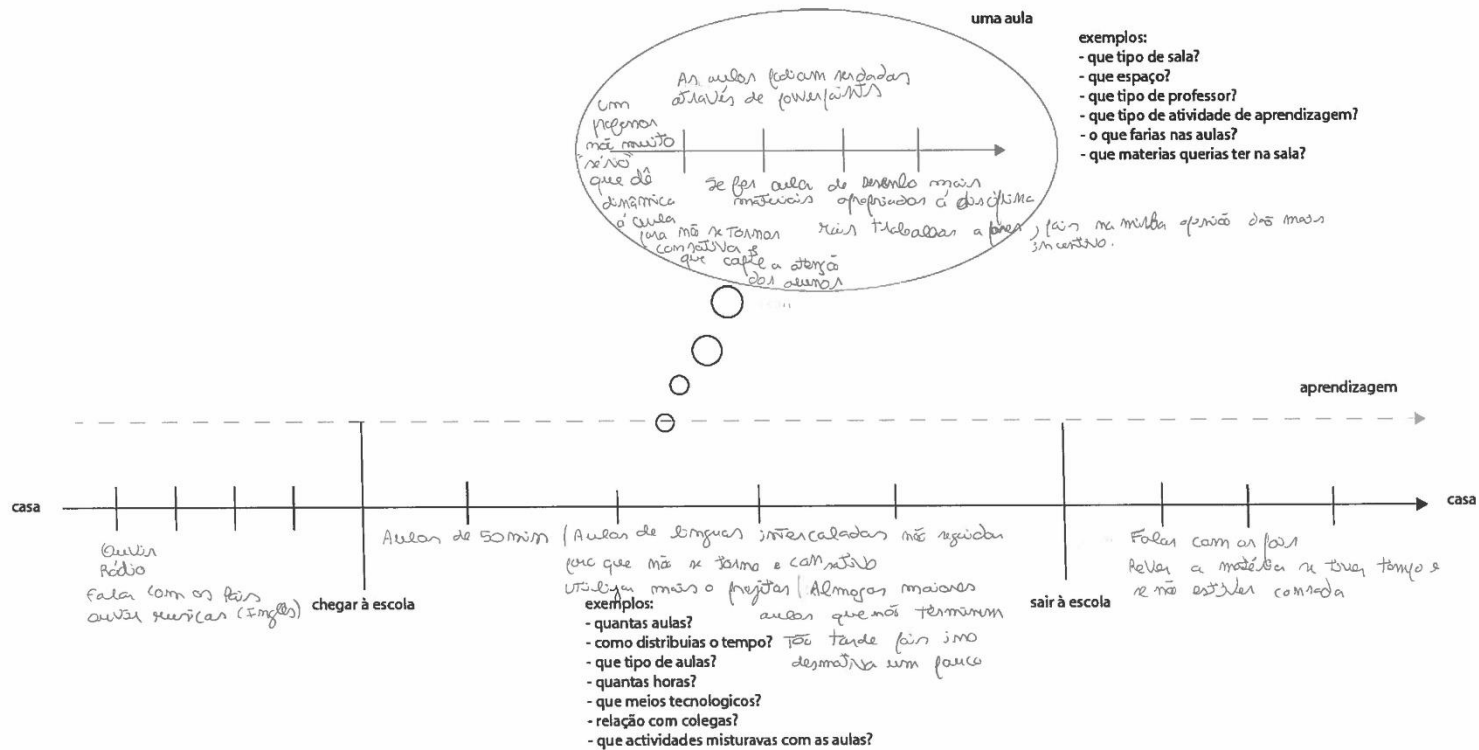 uma aula
exemplos:
- que tipo de sala?
- que espaço?
- que tipo de professor?
- que tipo de atividade de aprendizagem?
- o que farias nas aulas?
- que materias querias ter na sala?
As aulas podiam ser dadas
através de powerpoints
um
professor
não muito
"sério"
que dê
dinâmica
á aula
para não se tornar
cansativa e
que capte a atenção
dos alunos
Se for aula de Desenho mais
materiais apropriados á disciplina
mais trabalhos a pares, pois na minha opinião dão mais
incentivo.
aprendizagem
casa
casa
Ouvir
Rádio
Falar com os Pais
ouvir músicas (Inglês)
chegar à escola
Aulas de 50 min / Aulas de línguas intercaladas não seguidas
para que não se torne cansativo
Utilizar mais o projetor / Almoços maiores
aulas que não terminem
Tão tarde pois isso
desmotiva um pouco
exemplos:
- quantas aulas?
- como distribuias o tempo?
- que tipo de aulas?
- quantas horas?
- que meios tecnologicos?
- relação com colegas?
- que actividades misturavas com as aulas?
sair à escola
Falar com os pais
Rever a matéria se tiver tempo e
se não estiver cansada